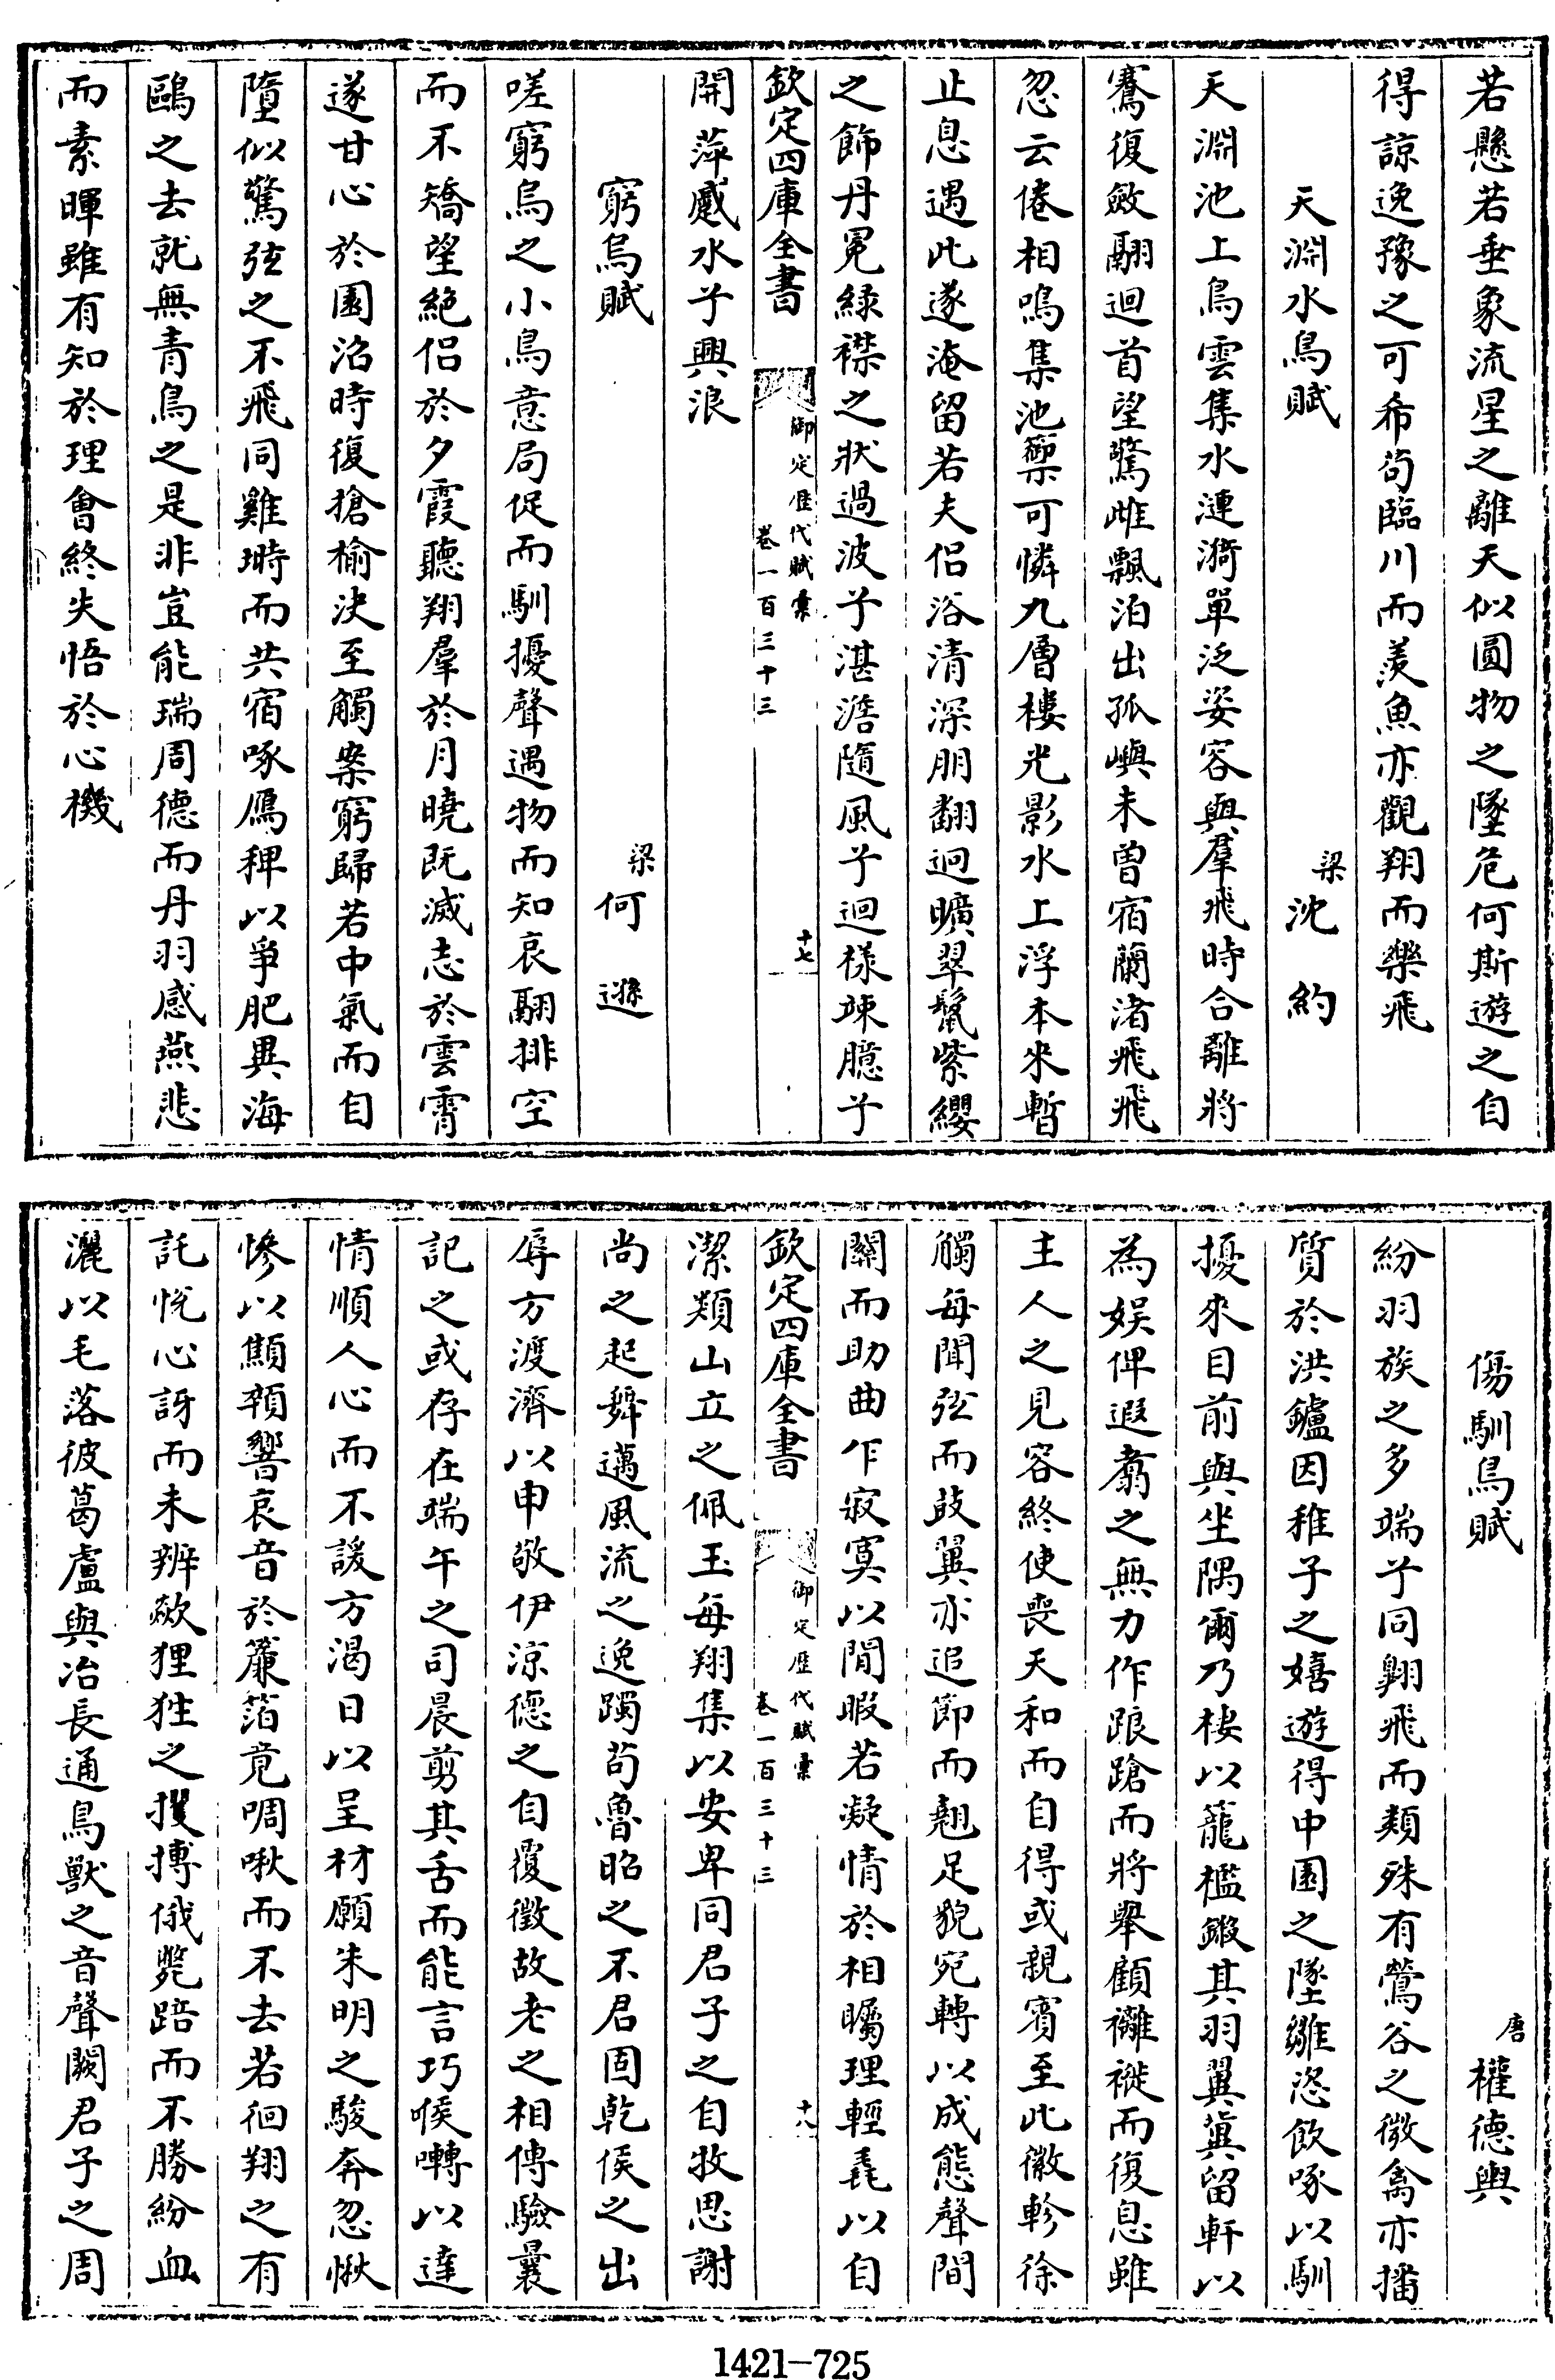 若懸若垂象流星之離天似圓物之墜危何斯遊之自
得諒逸豫之可希苟臨川而羡魚亦觀翔而樂飛
天淵水鳥賦
梁沈約
天淵池上鳥雲集水漣漪單泛姿容與羣飛時合離將
騫復斂翮迴首望驚雌飄泊出孤嶼未曾宿蘭渚飛飛
忽云倦相鳴集池籞可憐九層樓光影水上浮本來暫
止息遇此遂淹留若夫侶浴清深朋翻迥曠翠鬛紫纓
之飾丹冕緑襟之狀過波兮湛澹隨風兮迴樣竦臆兮
欽定四庫全書
御定歷代賦彙
卷一百三十三
十七
開萍蹙水兮興浪
窮烏賦
梁何遜
嗟窮烏之小鳥意局促而馴擾聲遇物而知哀翮排空
而不矯望絶侣於夕霞聽翔羣於月曉既滅志於雲霄
遂甘心於園沼時復搶榆決至觸案窮歸若中氣而自
墮似驚弦之不飛同雞塒而共宿啄鴈稗以爭肥異海
鷗之去就無青鳥之是非豈能瑞周德而丹羽感燕悲
而素暉雖有知於理會終失悟於心機
傷馴鳥賦
唐權德輿
紛羽族之多端兮同翺飛而類殊有鶯谷之微禽亦播
質於洪鑪因稚子之嬉遊得中園之墜雛恣飲啄以馴
擾來目前與坐隅爾乃棲以籠檻鎩其羽翼冀留軒以
為娱俾遐翥之無力作踉蹌而將舉顧襳褷而復息雖
主人之見容終使喪天和而自得或親賓至此徽軫徐
觸每聞弦而鼓翼亦追節而翹足貌宛轉以成態聲間
關而助曲乍寂寞以閒暇若凝情於相矚理輕毳以自
欽定四庫全書
御定歷代賦彙
卷一百三十三
十八
潔類山立之佩玉每翔集以安卑同君子之自牧思謝
尚之起舞邁風流之逸躅茍魯昭之不君固乾侯之出
辱方渡濟以申敬伊涼德之自覆徵故老之相傳驗曩
記之或存在端午之司晨剪其舌而能言巧喉囀以達
情順人心而不諼方渴日以呈材願朱明之駿奔忽愀
慘以顦顇響哀音於簾箔竟啁啾而不去若徊翔之有
託恍心訝而未辨歘狸狌之攫搏俄斃踣而不勝紛血
灑以毛落彼葛盧與冶長通鳥獸之音聲闕君子之周
1421—725